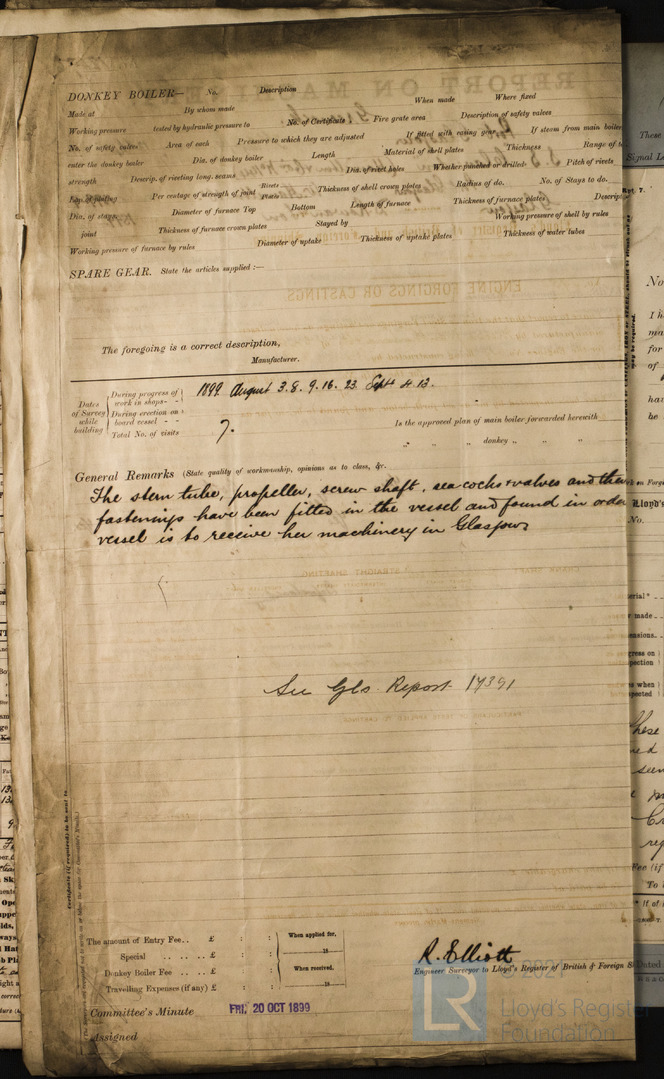 DONKEY BOILER— No. Description
Made at By whom made When made Where fixed
Working pressure tested by hydraulic pressure to No. of Certificate Fire grate area Description of safety valves
No. of safety valves Area of each Pressure to which they are adjusted If fitted with easing gear If steam from main boiler
enter the donkey boiler Dia. of donkey boiler Length Material of shell plates Thickness Range of
strength Descrip. of riveting long. seams Dia. of rivet holes Whether punched or drilled Pitch of rivets
Lap of plating Per centage of strength of joint Rivets Plates Thickness of shell crown plates Radius of do. No. of Stays to do.
Dia. of stays Diameter of furnace Top Bottom Length of furnace Thickness of furnace plates Descript
joint Thickness of furnace crown plates Stayed by Working pressure of shell by rules
Working pressure of furnace by rules Diameter of uptake Thickness of uptake plates Thickness of water tubes
SPARE GEAR. State the articles supplied :—
The foregoing is a correct description,
Manufacturer.
Dates of Survey while building
During progress of work in shops - - 1899 August 3. 8. 9. 16. 23. Sept 4. 13.
During erection on board vessel - -
Total No. of visits 7.
Is the approved plan of main boiler forwarded herewith
" " " donkey " " "
General Remarks (State quality of workmanship, opinions as to class, &c.
The stern tube, propeller, screw shaft, sea cocks & valves and their
fastenings have been fitted in the vessel and found in order
vessel is to receive her machinery in Glasgow
See Gls. Report 17391
Certificate (if required) to be sent to
The amount of Entry Fee.. £ : :
Special .. .. .. .. £ : :
Donkey Boiler Fee .. .. .. £ : :
Travelling Expenses (if any) £ : :
When applied for,
18
When received,
18
R. Elliott
Engineer Surveyor to Lloyd's Register of British & Foreign S
Committee's Minute FRI. 20 OCT 1899
Assigned
© 2021
LR
Lloyd's Register
Foundation